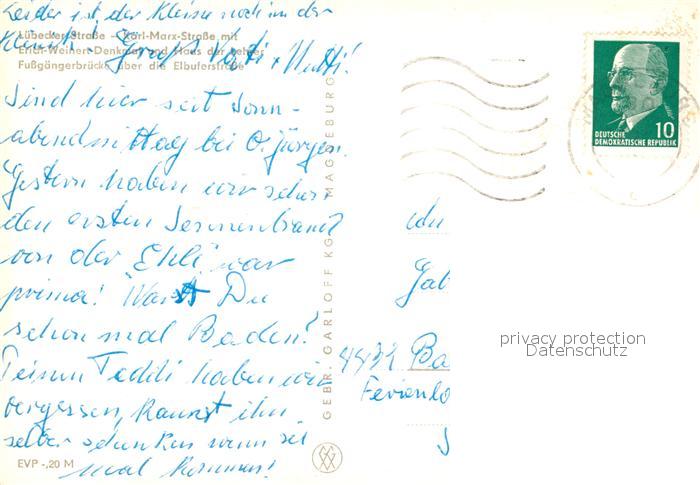 Leider ist der Kleine noch in der
Klinik! Gruß Vati + Mutti!
Lübecker Straße - Karl-Marx-Straße mit
Erich-Weinert-Denkmal und Haus der Lehrer
Fußgängerbrücke über die Elbuferstraße
Sind hier seit Sonn-
abendmittag bei O. Jürgen.
Gestern haben wir schon
den ersten Sonnenbrand
von der Elbe war
prima! Warst Du
schon mal Baden?
Deinen Teddi haben wir
vergessen, kannst ihn
selber schenken wenn sie
mal kommen!
EVP -,20 M
GEBR. GARLOFF KG MAGDEBURG
DEUTSCHE
DEMOKRATISCHE REPUBLIK
10
An
Gab
4432 Ba
Ferienla
privacy protection
Datenschutz